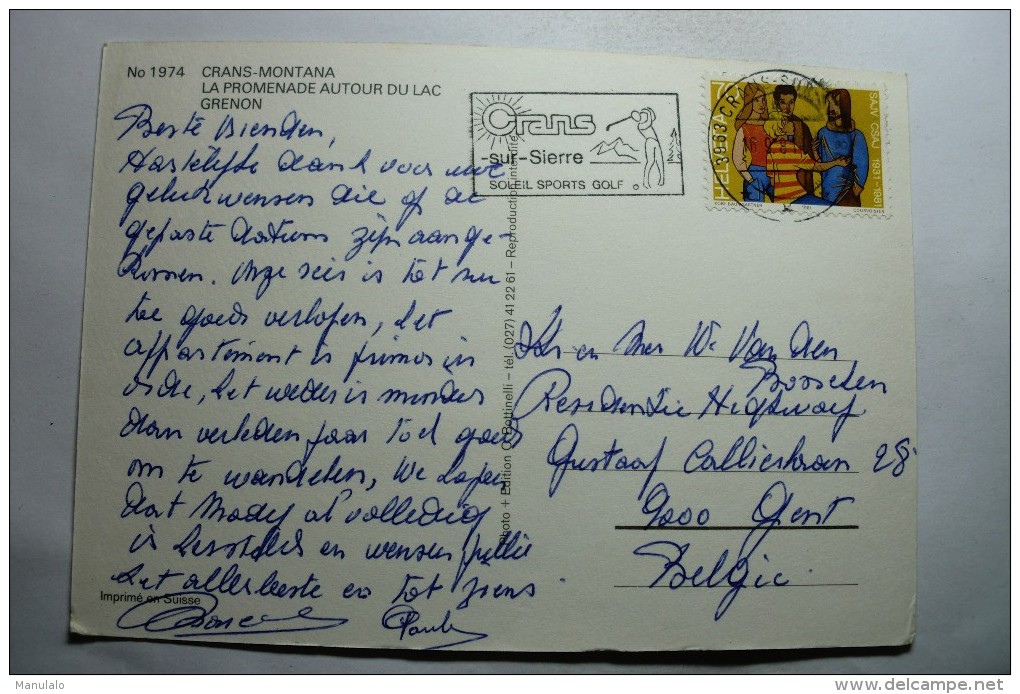 No 1974 CRANS-MONTANA
LA PROMENADE AUTOUR DU LAC
GRENON
Beste Vrienden,
Hartelijke dank voor uwe
gelukwensen die op de
gepaste datums zijn aange-
komen. Onze reis is tot nu
toe goed verlopen, het
appartement is primus in
orde, het weder is minder
dan verleden jaar toch goed
om te wandelen, We hopen
dat Mady al volledig
is hersteld en wensen jullie
het allerbeste en tot ziens
Imprimé en Suisse
Paula
Photo + Edition O. Bottinelli – tél. (027) 41 22 61 – Reproduction interdite
Crans
-sur-Sierre
SOLEIL SPORTS GOLF
3963 CRANS-SUR-
HELVETIA
SAJV CSAJ 1931-1981
1981
COURVOISIER
Hr en Mev W. Van den
Residentie Highway
Gustaaf Callierlaan 28
9000 Gent
Belgie
Manulalo
delcampe.net